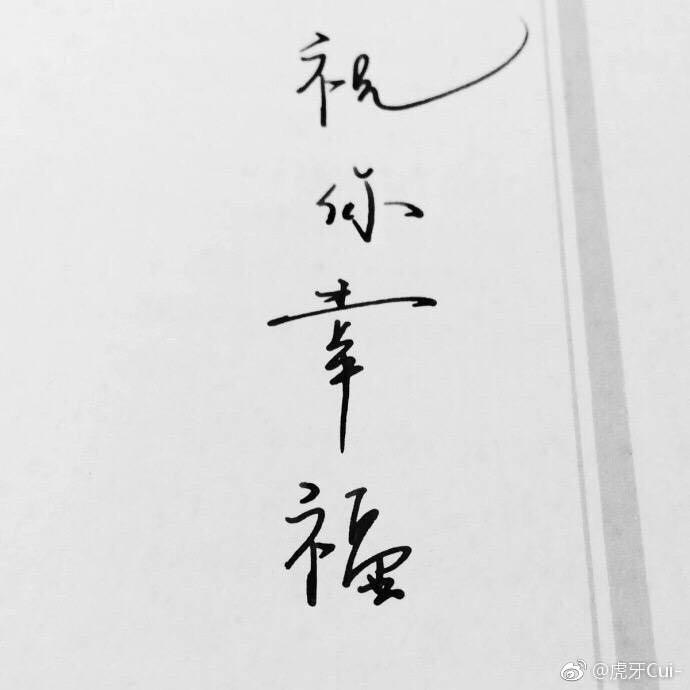 祝你幸福
@虎牙Cui-